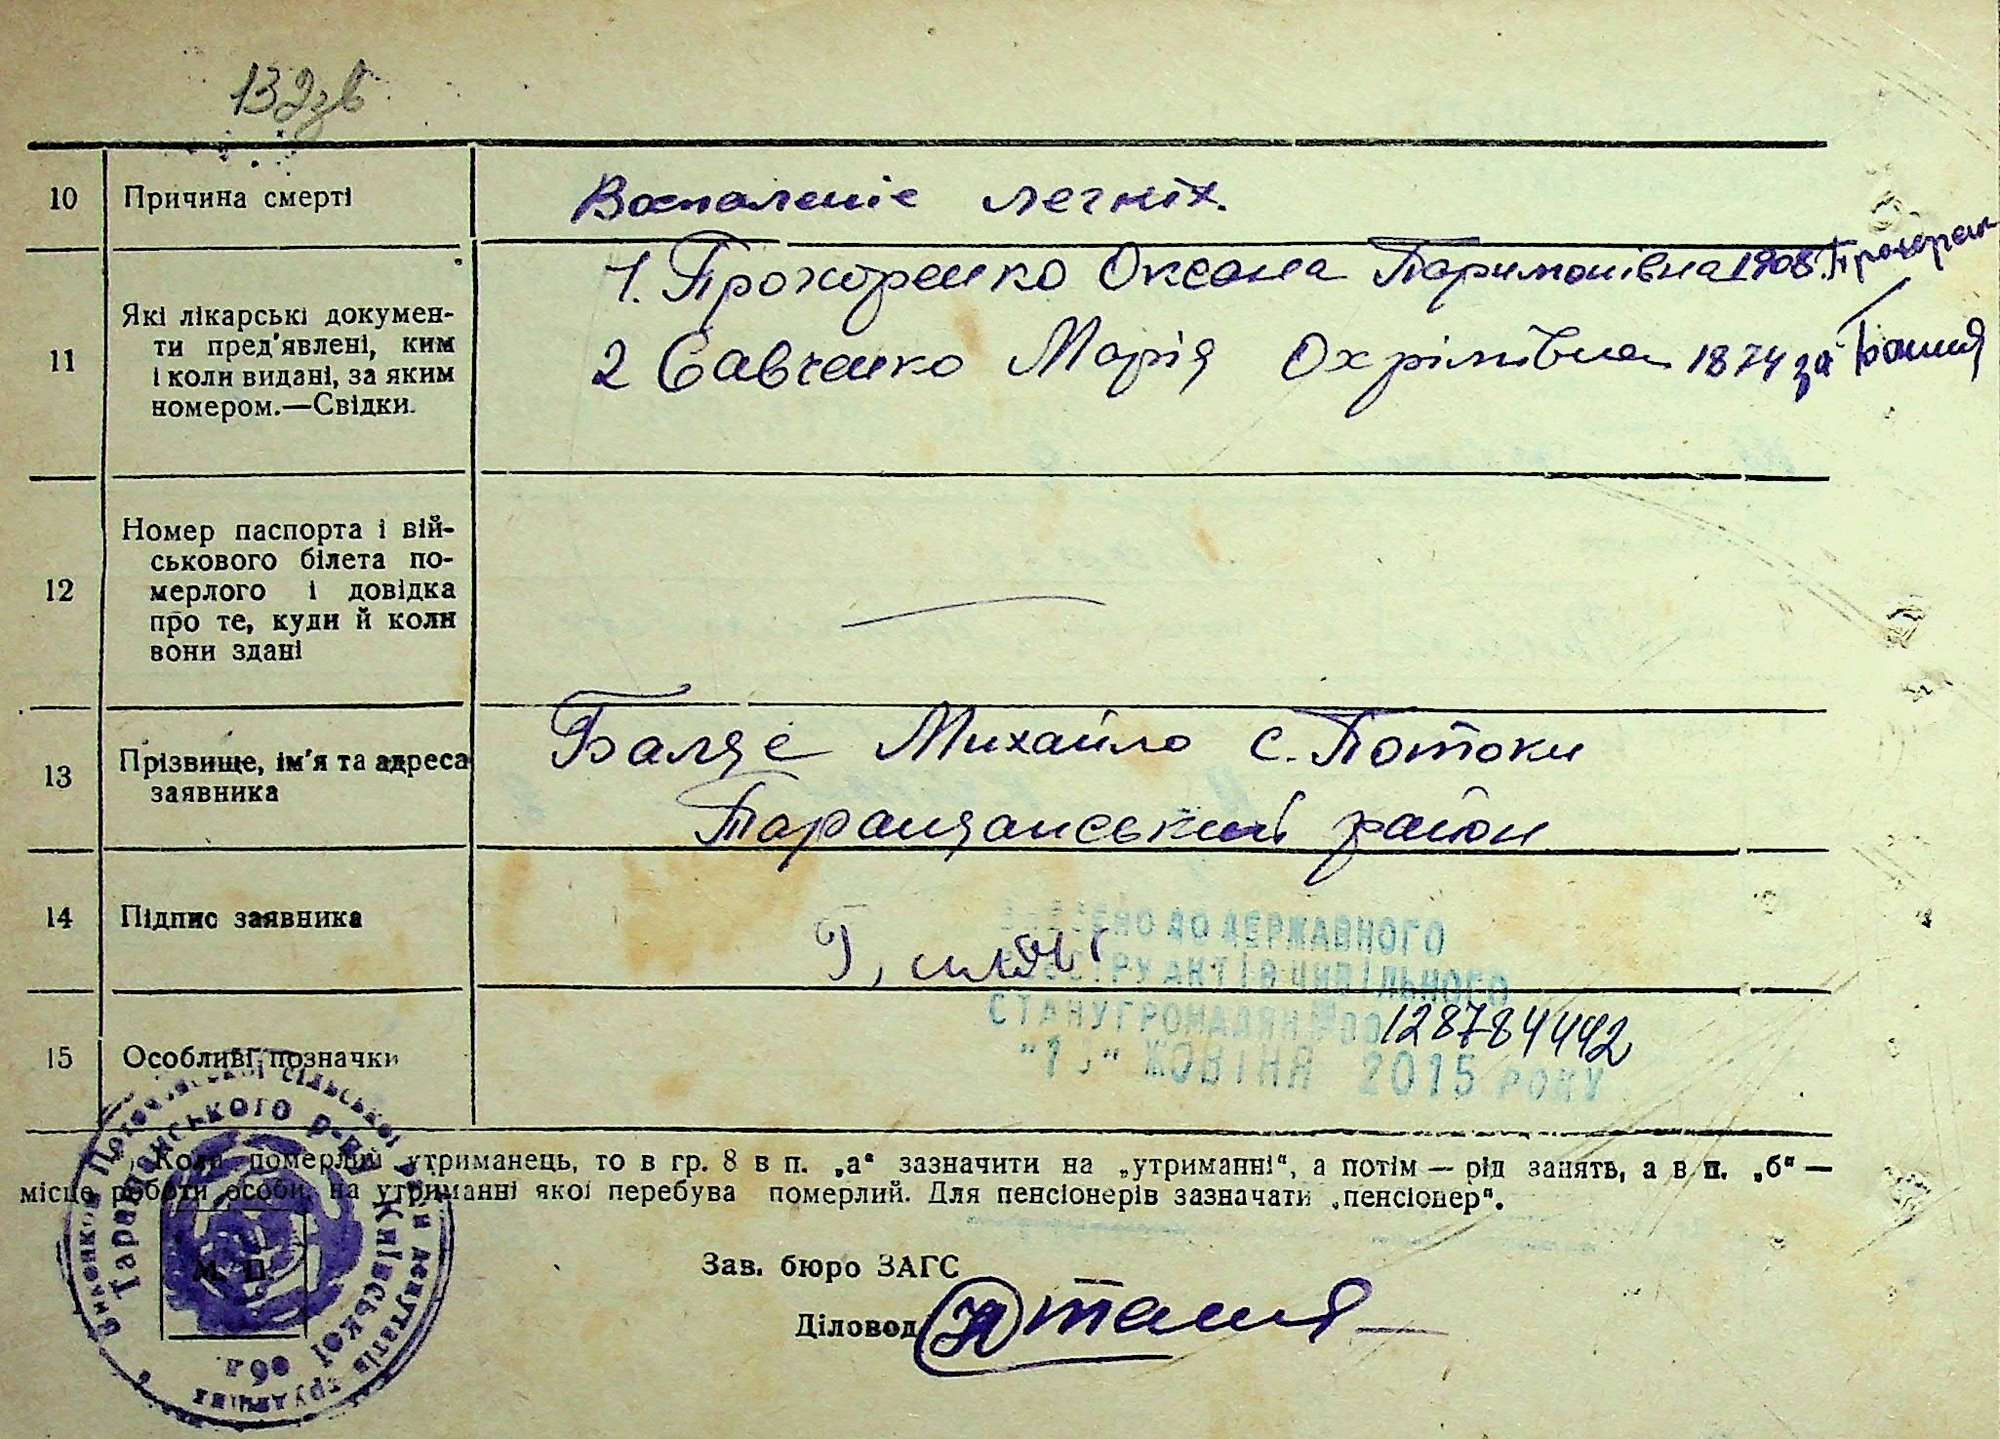 132зв
10 Причина смерті Воспаленіе легкіх.
11 Які лікарські докумен-
ти пред'явлені, ким
і коли видані, за яким
номером.—Свідки.
1. Прохоренко Оксана Паримонівна 1908.
2 Савченко Марія Охрімівна 1874 за
12 Номер паспорта і вій-
ськового білета по-
мерлого і довідка
про те, куди й коли
вони здані
13 Прізвище, ім'я та адреса
заявника
Михайло с. Потоки
Таращанський район
14 Підпис заявника
15 Особливі позначки
ДО ДЕРЖАВНОГО
РЕЄСТРУ АКТІВ ЦИВІЛЬНОГО
СТАНУ ГРОМАДЯН №00128784442
ЖОВТНЯ 2015 РОКУ
Коли померлий утриманець, то в гр. 8 в п. „а“ зазначити на „утриманні“, а потім — рід занять, а в п. „б“ —
місце роботи особи, на утриманні якої перебува померлий. Для пенсіонерів зазначати „пенсіонер“.
Таращанського р-ну Київської обл.
М. П.
Зав. бюро ЗАГС
Діловод